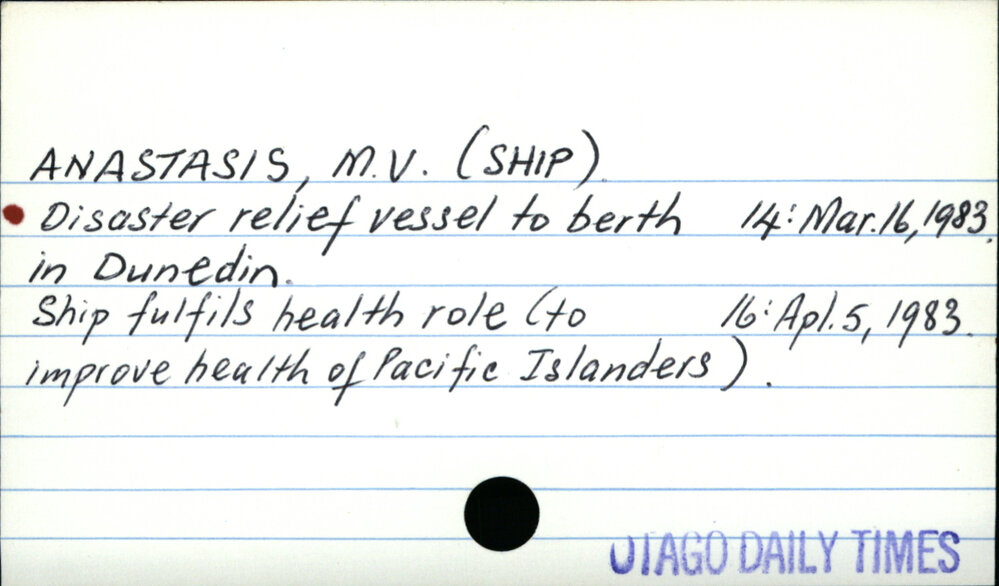 ANASTASIS, M.V. (SHIP).
Disaster relief vessel to berth 14: Mar.16,1983.
in Dunedin.
Ship fulfils health role (to 16: Apl.5, 1983.
improve health of Pacific Islanders).
OTAGO DAILY TIMES